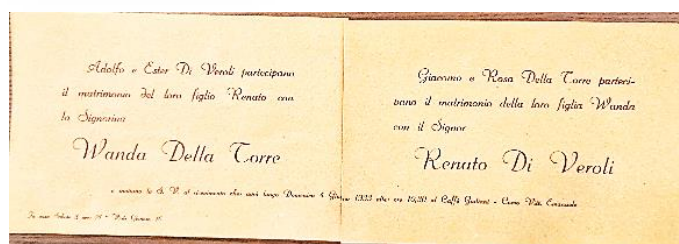 Adolfo e Ester Di Veroli partecipano
il matrimonio del loro figlio Renato con
la Signorina
Wanda Della Torre
Giacomo e Rosa Della Torre parteci-
pano il matrimonio della loro figlia Wanda
con il Signor
Renato Di Veroli
e invitano la S. V. al ricevimento che avrà luogo Domenica 4 Giugno alle ore al Caffè - Corso Vitt. Emanuele